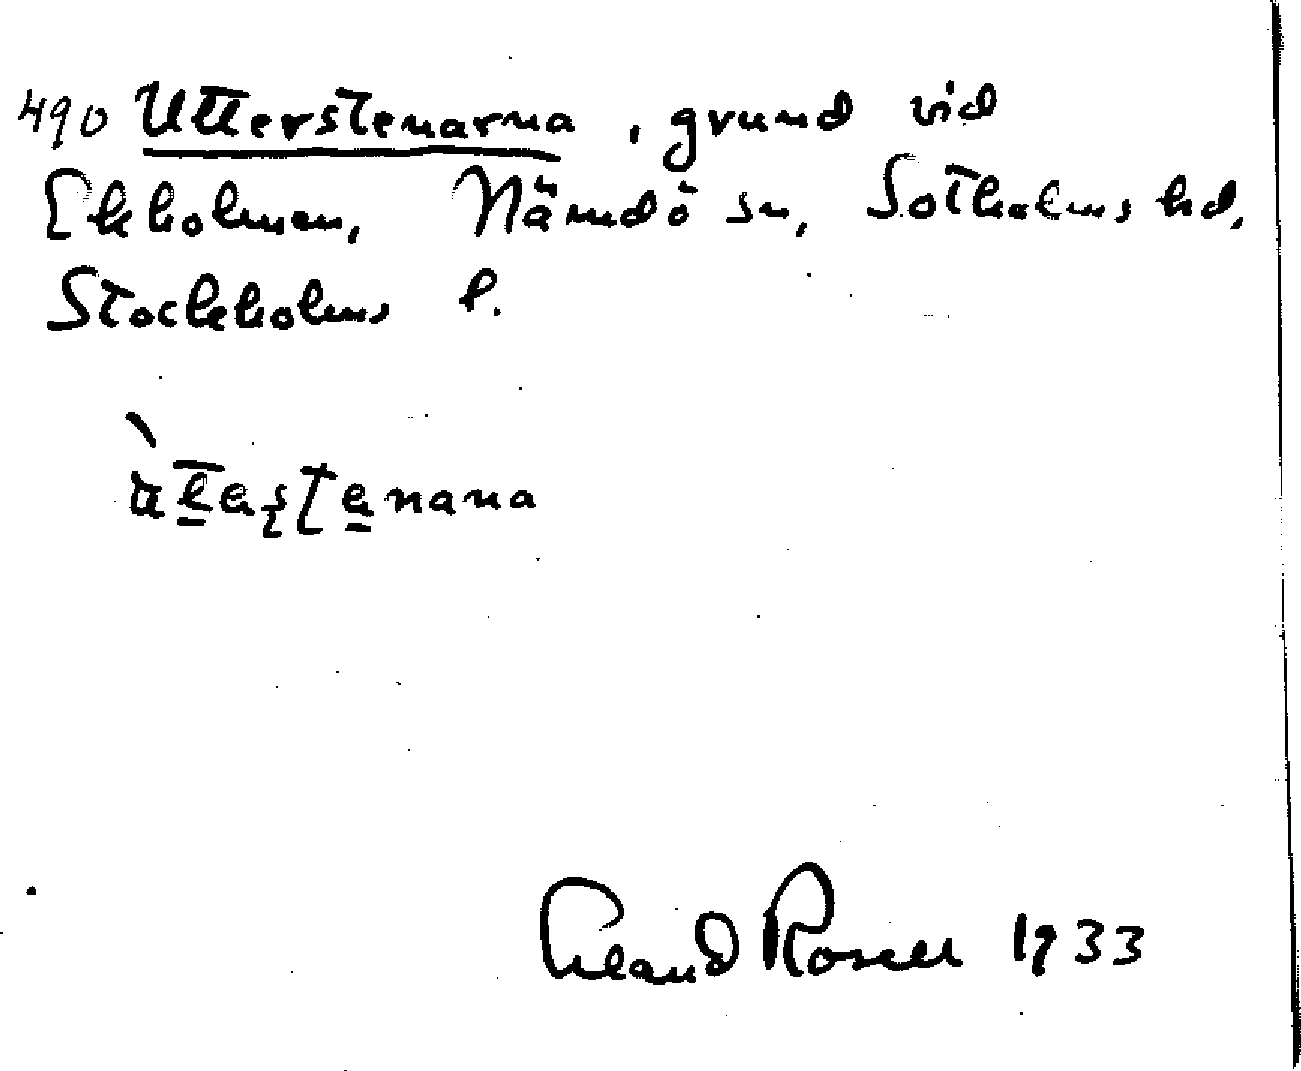 490 Utterstenarna, grund vid
Ekholmen, Nämdö sn, Sotholms hd,
Stockholms l.
Eland Rosell 1933